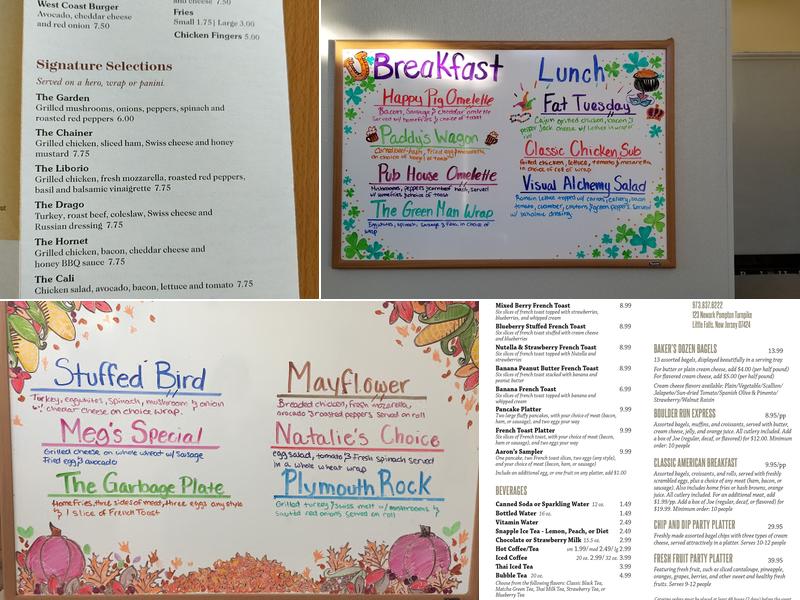 West Coast Burger
Avocado, cheddar cheese
and red onion 7.50
and cheese 7.50
Fries
Small 1.75 | Large 3.00
Chicken Fingers 5.00
Signature Selections
Served on a hero, wrap or panini.
The Garden
Grilled mushrooms, onions, peppers, spinach and
roasted red peppers 6.00
The Chainer
Grilled chicken, sliced ham, Swiss cheese and honey
mustard 7.75
The Liborio
Grilled chicken, fresh mozzarella, roasted red peppers,
basil and balsamic vinaigrette 7.75
The Drago
Turkey, roast beef, coleslaw, Swiss cheese and
Russian dressing 7.75
The Hornet
Grilled chicken, bacon, cheddar cheese and
honey BBQ sauce 7.75
The Cali
Chicken salad, avocado, bacon, lettuce and tomato 7.25
Breakfast
Happy Pig Omelette
Bacon, Sausage & cheddar omelette
Served w/ homefries & choice of toast
Paddy's Wagon
Corned beef hash, fried egg & mozzarella
on choice of bagel or toast
Pub House Omelette
Mushrooms, peppers & corned beef hash, served
w/ homefries & choice of toast
The Green Man Wrap
Egg whites, spinach, sausage & feta in choice of
wrap
Lunch
Fat Tuesday
Cajun grilled chicken, bacon &
pepper jack cheese w/ lettuce in wrap or
Classic Chicken Sub
Grilled chicken, lettuce, tomato & mozzarella
in choice of roll or wrap
Visual Alchemy Salad
Romaine lettuce topped w/ carrots, celery, bacon
tomato, cucumber, croutons & green peppers. Served
w/ balsamic dressing
Stuffed Bird
Turkey, egg whites, Spinach, mushroom & onion
w/ chedar cheese on choice wrap.
Meg's Special
Grilled cheese on whole wheat w/ Sausage
Fried egg & avocado
The Garbage Plate
Home fries, three sides of meat, three eggs any style
& 1 slice of French Toast
Mayflower
Breaded chicken, fresh mozzarella,
avocado & roasted peppers served on roll
Natalie's Choice
egg salad, tomato & Fresh spinach served
in a whole wheat wrap
Plymouth Rock
Grilled turkey & swiss melt w/ mushrooms &
sauted red onions served on roll
Mixed Berry French Toast 8.99
Six slices of french toast topped with strawberries,
blueberries, and whipped cream
Blueberry Stuffed French Toast 8.99
Six slices of french toast stuffed with cream cheese
and blueberries
Nutella & Strawberry French Toast 8.99
Six slices of french toast topped with Nutella and
strawberries
Banana Peanut Butter French Toast 8.99
Six slices of french toast stacked with banana and
peanut butter
Banana French Toast 6.99
Six slices of french toast topped with banana and
whipped cream
Pancake Platter 9.99
Two large fluffy pancakes, with your choice of meat (bacon,
ham, or sausage), and two eggs your way
French Toast Platter 9.99
Six slices of french toast, with your choice of meat (bacon,
ham, or sausage), and two eggs your way
Aaron's Sampler 9.99
One pancake, two French toast slices, two eggs (any style),
and your choice of meat (bacon, ham, or sausage).
Include an additional egg, or one fruit on any platter, add $1.00
BEVERAGES
Canned Soda or Sparkling Water 12 oz. 1.49
Bottled Water 16 oz. 1.49
Vitamin Water 2.99
Snapple Ice Tea - Lemon, Peach, or Diet 2.49
Chocolate or Strawberry Milk 15.5 oz. 2.99
Hot Coffee/Tea sm 1.99/ med 2.49/ lg 2.99
Iced Coffee 20 oz. 2.99/ 32 oz. 3.99
Thai Iced Tea 3.99
Bubble Tea 20 oz. 4.99
Choose from the following flavors: Classic Black Tea,
Matcha Green Tea, Thai Milk Tea, Strawberry Tea, or
Blueberry Tea
973.837.6222
123 Newark Pompton Turnpike
Little Falls, New Jersey 07424
BAKER'S DOZEN BAGELS 13.99
13 assorted bagels, displayed beautifully in a serving tray
For butter or plain cream cheese, add $4.00 (per half pound)
For flavored cream cheese, add $5.00 (per half pound)
Cream cheese flavors available: Plain/Vegetable/Scallion/
Jalapeño/Sun-dried Tomato/Spanish Olive & Pimento/
Strawberry/Walnut Raisin
BOULDER RUN EXPRESS 8.95/pp
Assorted bagels, muffins, and croissants, served with butter,
cream cheese, jelly, and orange juice. All cutlery included. Add
a box of Joe (regular, decaf, or flavored) for $12.00. Minimum
order: 10 people
CLASSIC AMERICAN BREAKFAST 9.95/pp
Assorted bagels, croissants, and rolls, served with freshly
scrambled eggs, plus a choice of any meat (ham, bacon, or
sausage). Also includes home fries or hash browns, orange
juice. All cutlery included. For an additional meat, add
$1.99/pp. Add a box of Joe (regular, decaf, or flavored) for
$19.99. Minimum order: 10 people
CHIP AND DIP PARTY PLATTER 29.95
Freshly made assorted bagel chips with three types of cream
cheese, served attractively in a platter. Serves 10-12 people
FRESH FRUIT PARTY PLATTER 39.95
Featuring fresh fruit, such as sliced cantaloupe, pineapple,
oranges, grapes, berries, and other sweet and healthy fresh
fruits. Serves 9-12 people